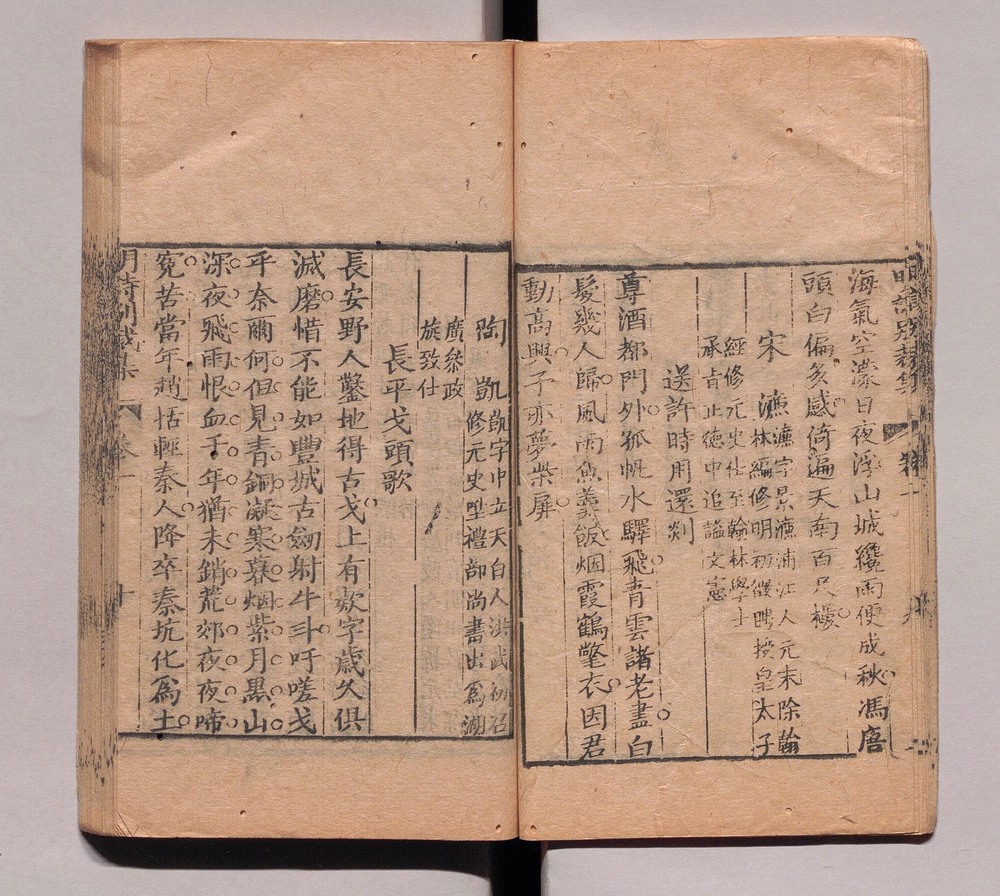 海氣空濛日夜浮山城纔雨便成秋馮唐
頭白偏多感倚遍天南百尺樓
宋濂
濂字景濂浦江人元末除翰
林編修明初徵聘授皇太子
經修元史仕至翰林學士
承旨正德中追諡文憲
送許時用還剡
尊酒都門外孤帆水驛飛青雲諸老盡白
髮幾人歸風雨魚羹飯烟霞鶴氅衣因君
動高興予亦夢柴扉
明詩別裁集 卷一
陶凱
凱字中立天台人洪武初召
修元史歷禮部尚書出為湖
廣參政
旋致仕
長平戈頭歌
長安野人鑿地得古戈上有款字歲久俱
滅磨惜不能如豐城古劍射牛斗吁嗟戈
乎奈爾何但見青銅凝寒暮烟紫月黑山
深夜飛雨恨血千年猶未銷荒郊夜夜啼
寃苦當年趙括輕秦人降卒秦坑化爲土
明詩別裁集 卷一 十